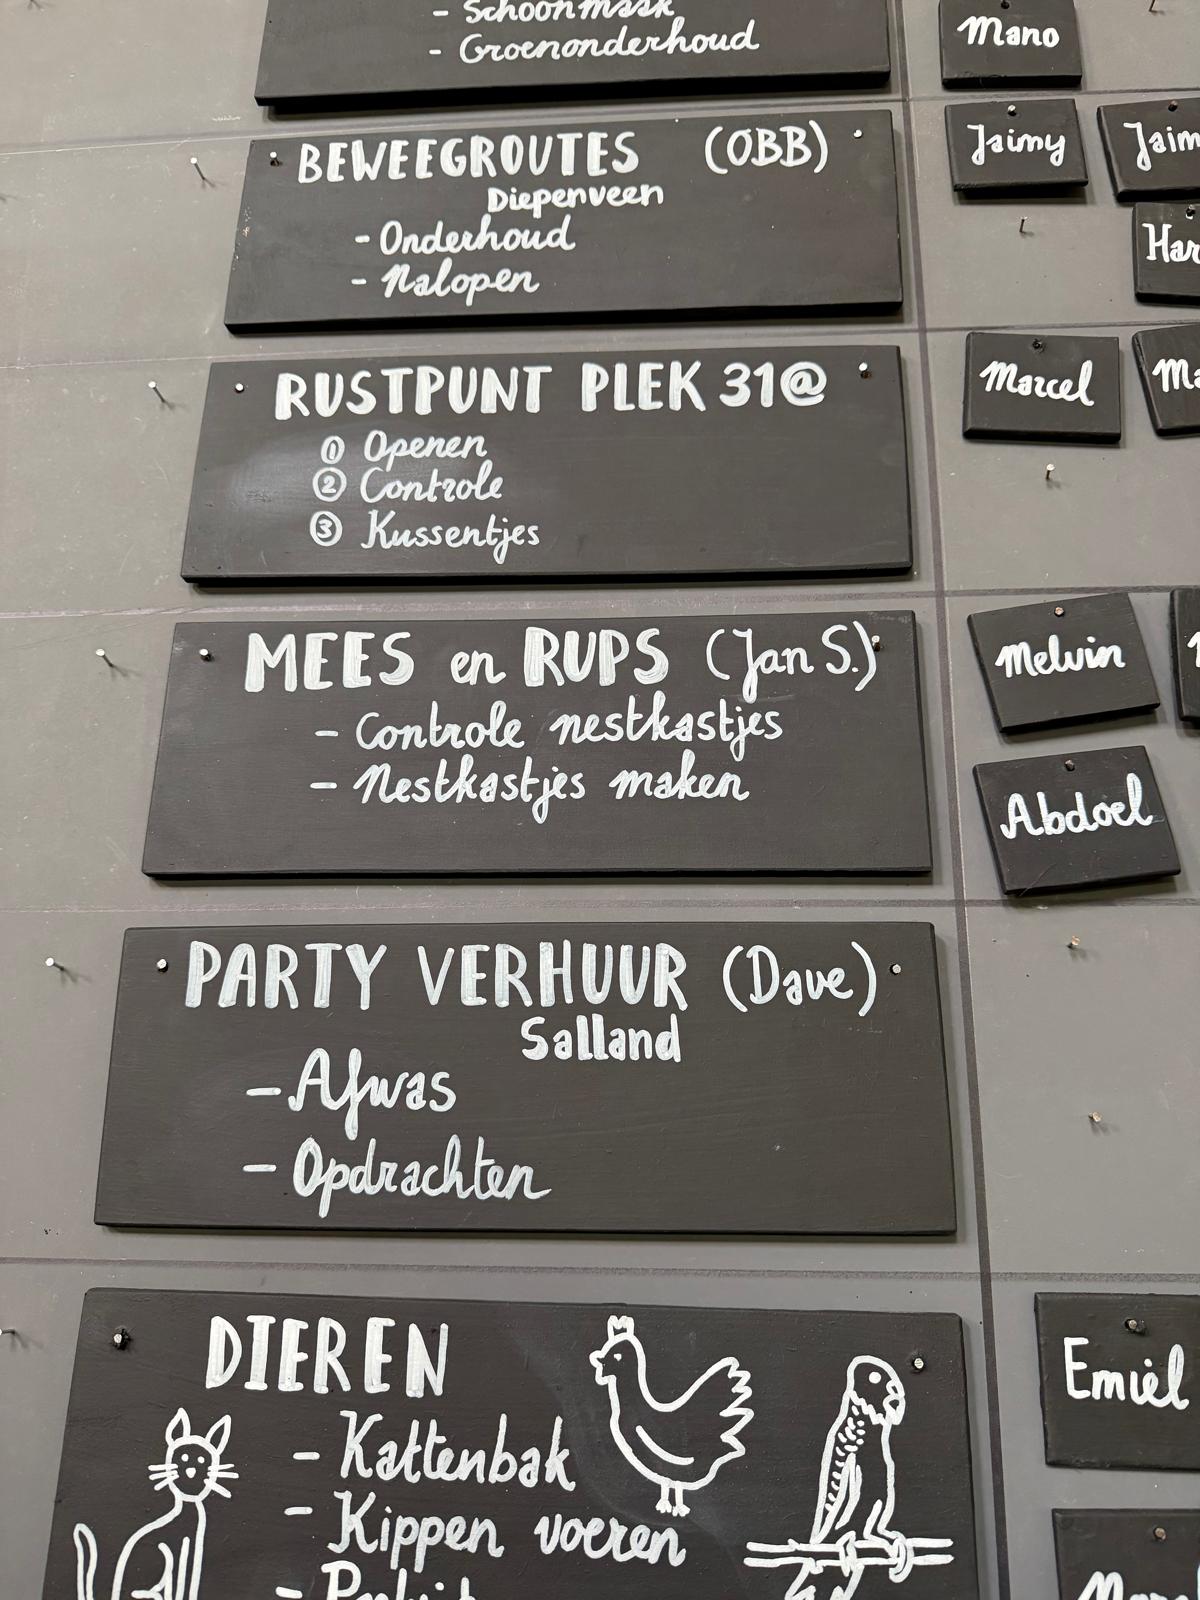 - Schoonmaak
- Groenonderhoud
Mano
BEWEEGROUTES (OBB)
Diepenveen
- Onderhoud
- Nalopen
Jaimy
RUSTPUNT PLEK 31@
① Openen
② Controle
③ Kussentjes
Marcel
MEES en RUPS (Jan S.)
- Controle nestkastjes
- Nestkastjes maken
Melvin
Abdoel
PARTY VERHUUR (Dave)
Salland
- Afwas
- Opdrachten
DIEREN
- Kattenbak
- Kippen voeren
Emiël